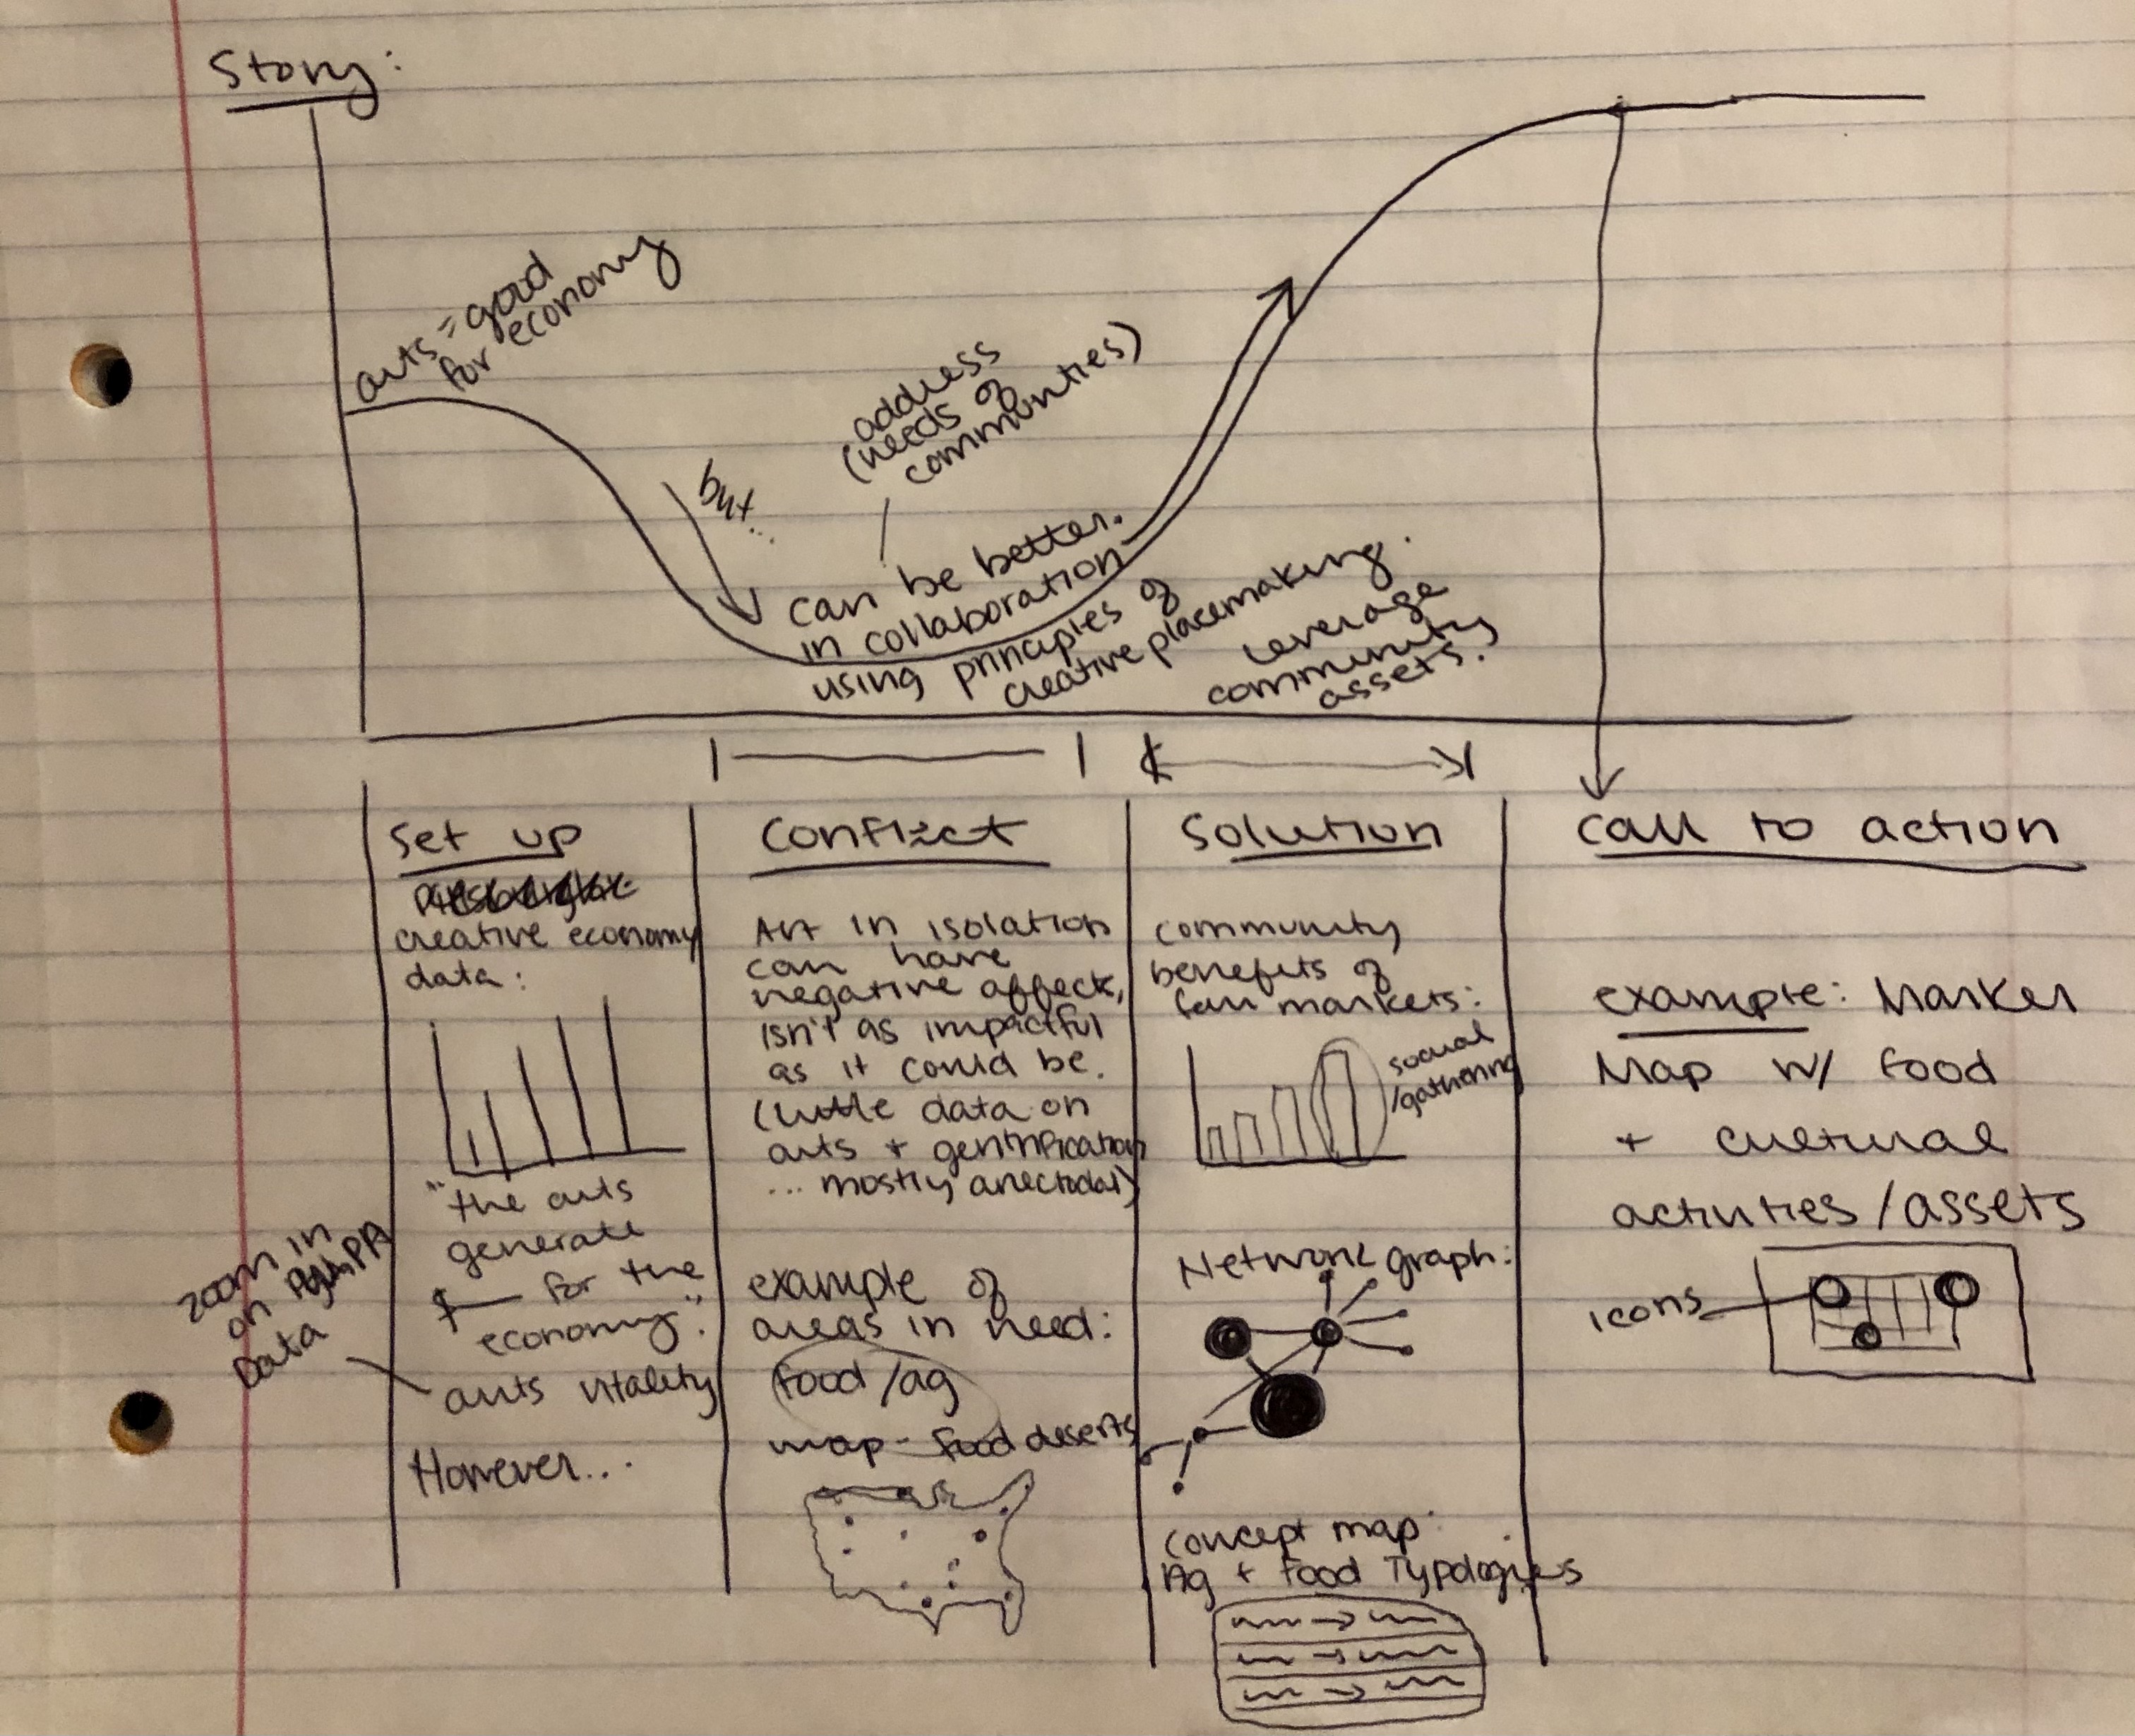 Story:
arts = good
for economy
but...
address
(needs of
communities)
can be better.
in collaboration
using principles of
creative placemaking.
leverage
community
assets.
Set up
creative economy
data:
"the arts
generate
$__ for the
economy."
zoom in
on PA
Data
arts vitality
However...
Conflict
Art in isolation
can have
negative affects,
isn't as impactful
as it could be.
(little data on
arts + gentrification
... mostly anectodal)
example of
areas in need:
food/ag
map - food deserts
Solution
community
benefits of
markets:
social
/gathering
Network graph:
concept map:
Ag + Food Typologies
Call to action
example: Marker
Map w/ food
+ cultural
activities/assets
icons